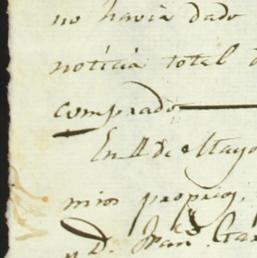 no havia dado
noticia total d
comprado
En 11 de Mayo
mios propios,
y D. Fran.co Gar